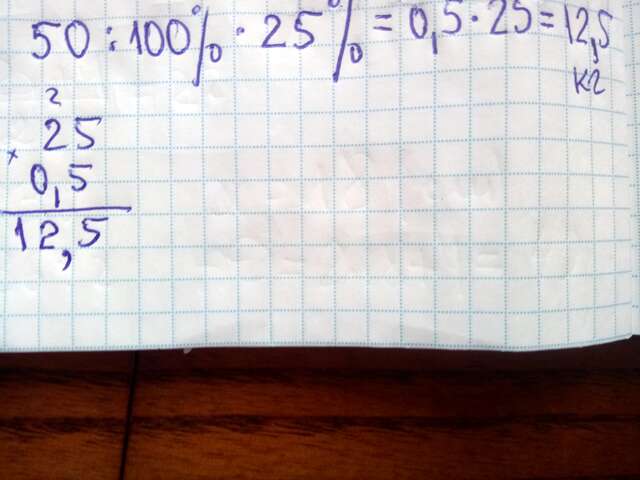 50 : 100% · 25% = 0,5 · 25 = 12,5
кг
2
25
×
0,5
12,5